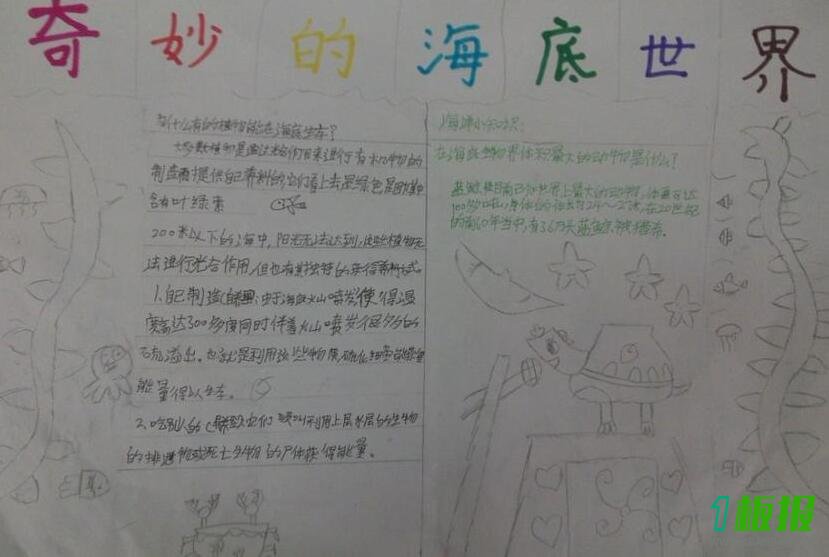 奇妙的海底世界
为什么有的植物能在海底生存?
大多数植物是通过光合作用来进行有机物的
制造并提供自己养料的,它们看上去是绿色是因为其中
含有叶绿素
200米以下的海中,阳光无法达到,这些植物无
法进行光合作用,但也有其独特的获得养料方式。
1.自己制造:由于海底火山喷发使得温
度高达300多度同时伴着火山喷发很多的
硫溢出。也就是利用这些物质硫化细菌
能量得以生存。
2.吃别人的(腐殖)它们利用上层水层的生物
的排遗物或死亡生物的尸体获得能量。
海洋小知识:
在海底生物界体积最大的动物是什么?
蓝鲸是目前已知世界上最大的动物,体重可达
100多吨,身体的体长为24~27米,在20世纪
的前60年当中,有36万头蓝鲸被捕杀。
1板报